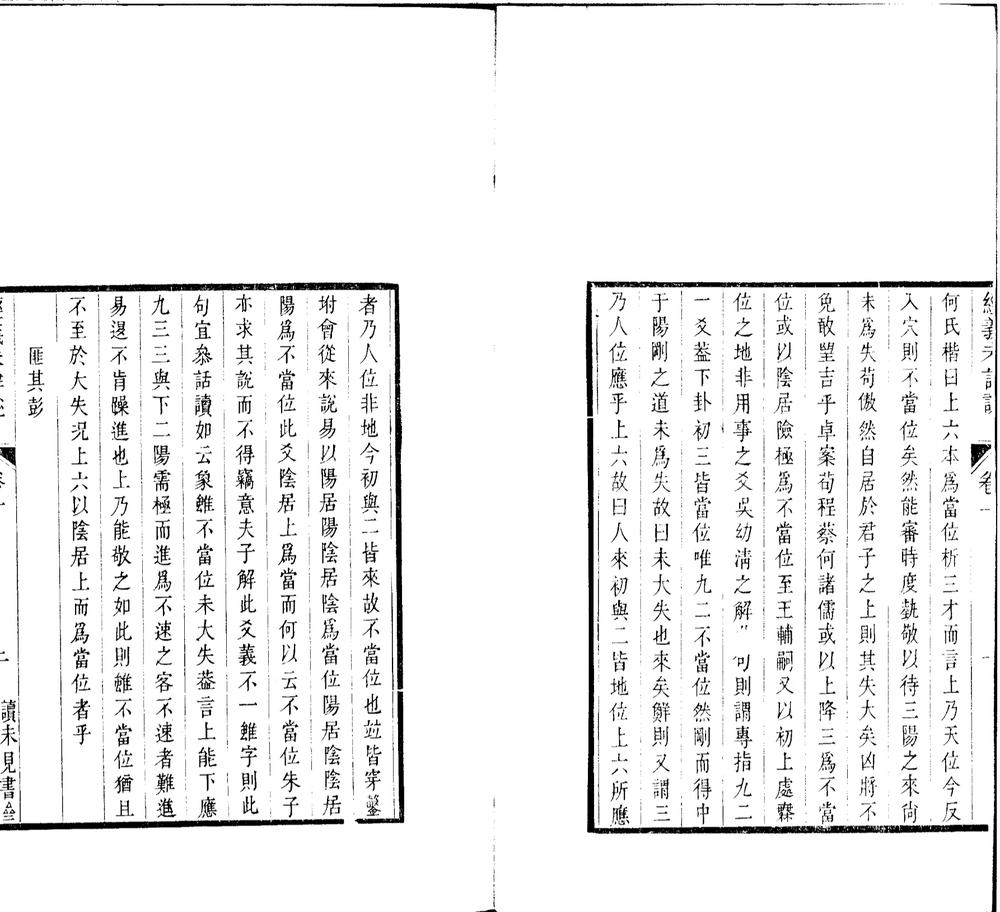 經義未詳說
卷一
一
何氏楷曰上六本爲當位析三才而言上乃天位今反
入穴則不當位矣然能審時度埶敬以待三陽之來尙
未爲失苟傲然自居於君子之上則其失大矣凶將不
免敢望吉乎卓案荀程蔡何諸儒或以上降三爲不當
位或以陰居險極爲不當位至王輔嗣又以初上處無
位之地非用事之爻吳幼淸之解〃句則謂專指九二
一爻葢下卦初三皆當位唯九二不當位然剛而得中
于陽剛之道未爲失故曰未大失也來矣鮮則又謂三
乃人位應乎上六故曰人來初與二皆地位上六所應
者乃人位非地今初與二皆來故不當位也竝皆穿鑿
坿會從來說易以陽居陽陰居陰爲當位陽居陰陰居
陽爲不當位此爻陰居上爲當而何以云不當位朱子
亦求其說而不得竊意夫子解此爻義不一雖字則此
句宜叅話讀如云象雖不當位未大失葢言上能下應
九三三與下二陽需極而進爲不速之客不速者難進
易退不肯躁進也上乃能敬之如此則雖不當位猶且
不至於大失况上六以陰居上而爲當位者乎
匪其彭
卷一
二
讀未見書